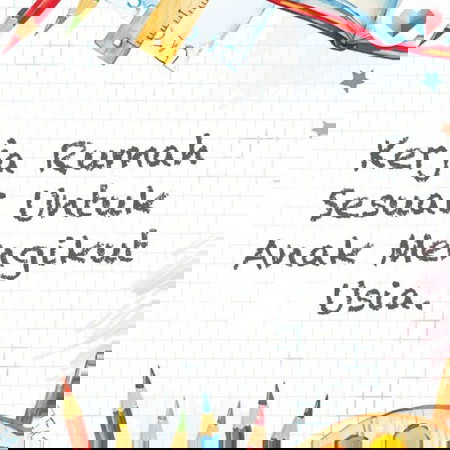 Kerja Rumah
Sesuai Untuk
Anak Mengikut
Usia.